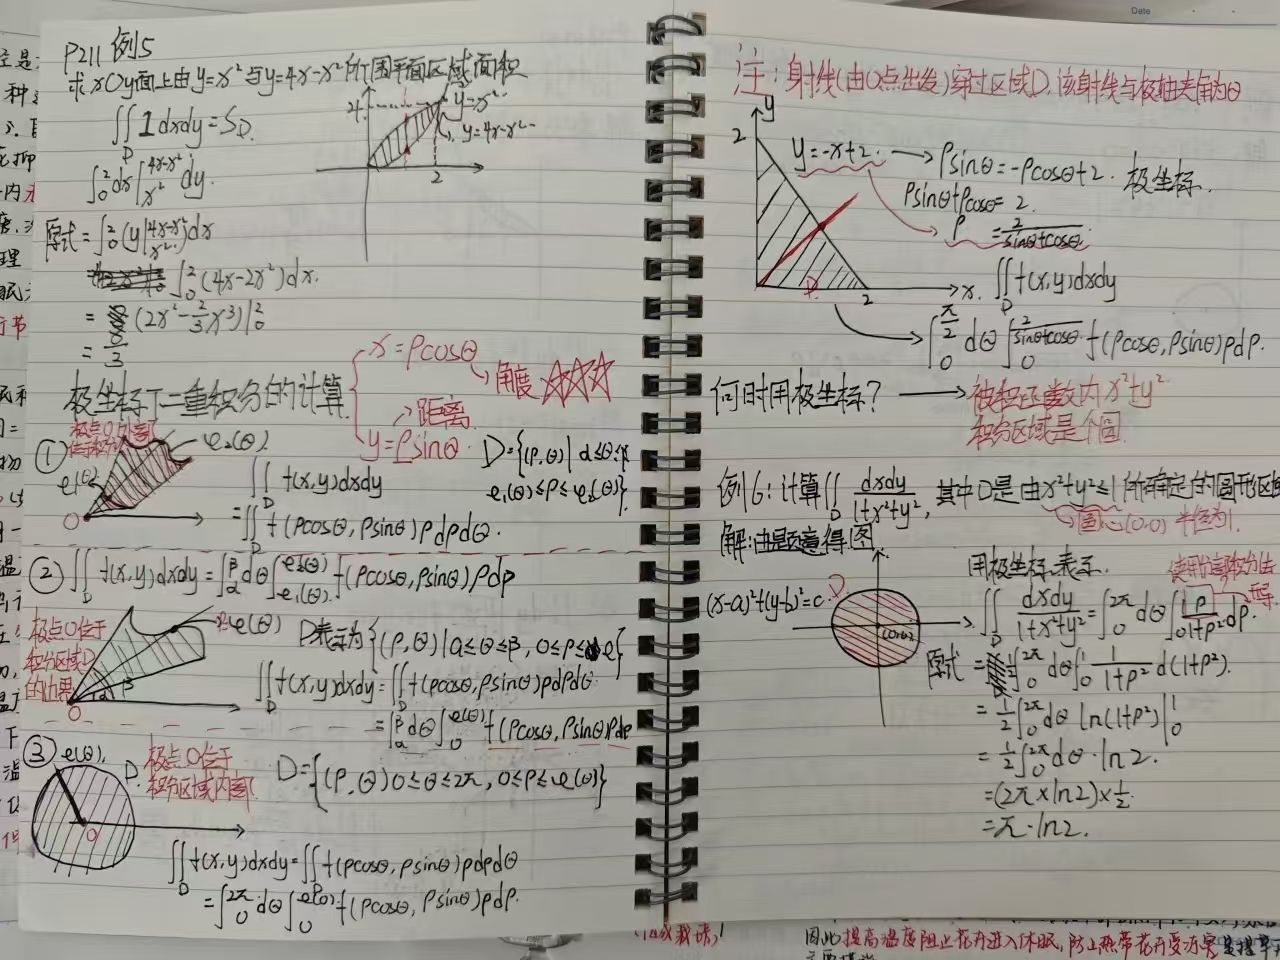 P211 例5
求xOy面上由y=x²与y=4x-x²所围平面区域面积
∬_D 1dxdy=S_D.
∫₀²dx∫_{x²}^{4x-x²}dy.
原式=∫₀²(y|_{x²}^{4x-x²})dx
∫₀²(4x-2x²)dx.
=(2x²-⅔x³)|₀²
=8/3
4
y=x²
y=4x-x²
2
极坐标下二重积分的计算
x=ρcosθ
→角度 ☆☆☆
→距离
y=ρsinθ
① 极点O外部
φ₂(θ)
φ₁(θ)
O
∬_D f(x,y)dxdy
=∬_D f(ρcosθ,ρsinθ)ρdρdθ.
D={(ρ,θ)|α≤θ≤β
φ₁(θ)≤ρ≤φ₂(θ)}.
② ∬_D f(x,y)dxdy=∫_α^β dθ∫_{φ₁(θ)}^{φ₂(θ)} f(ρcosθ,ρsinθ)ρdρ
极点O位于
积分区域D
的边界
φ(θ)
β
O
D表示为{(ρ,θ)|α≤θ≤β,0≤ρ≤φ}
∬_D f(x,y)dxdy=∬_D f(ρcosθ,ρsinθ)ρdρdθ
=∫_α^β dθ∫₀^{φ(θ)} f(ρcosθ,ρsinθ)ρdρ
③ φ(θ).
D.
O
极点O位于
积分区域内部.
D={(ρ,θ)0≤θ≤2π,0≤ρ≤φ(θ)}
∬_D f(x,y)dxdy=∬_D f(ρcosθ,ρsinθ)ρdρdθ
=∫₀^{2π}dθ∫₀^{φ(θ)} f(ρcosθ,ρsinθ)ρdρ.
Date
注:射线(由O点出发)穿过区域D.该射线与极轴夹角为θ
y
2
y=-x+2.→ρsinθ=-ρcosθ+2. 极坐标.
ρsinθ+ρcosθ=2.
ρ=2/(sinθ+cosθ).
D.
2
x.
∬_D f(x,y)dxdy
∫₀^{π/2}dθ∫₀^{2/(sinθ+cosθ)} f(ρcosθ,ρsinθ)ρdρ.
何时用极坐标?→被积函数内x²+y²
积分区域是个圆
例6:计算∬_D dxdy/(1+x²+y²),其中D是由x²+y²≤1所确定的圆形区域
→圆心(0,0) 半径为1.
解:由题意得图
(x-a)²+(y-b)²=c.
D
用极坐标表示.
∬_D dxdy/(1+x²+y²)=∫₀^{2π}dθ∫₀¹ρ/(1+ρ²)dρ.
原式=½∫₀^{2π}dθ∫₀¹ 1/(1+ρ²) d(1+ρ²).
=½∫₀^{2π}dθ ln(1+ρ²)|₀¹
=½∫₀^{2π}dθ·ln2.
=(2π×ln2)×½.
=π·ln2.
因此提高温度阻止花卉进入休眠,防止热带花卉受冻害